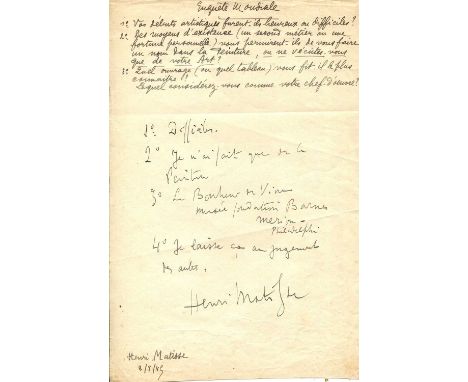 Enquête Mondiale
1º Vos débuts artistiques furent-ils heureux ou difficiles?
2º Des moyens d'existence (un second métier ou une
fortune personnelle) vous permirent-ils de vous faire
un nom dans la Peinture, ou ne vécûtes-vous
que de votre Art?
3º Quel ouvrage (ou quel tableau) vous fit le plus
connaître?
Lequel considérez-vous comme votre chef d'œuvre?
1º Difficiles.
2º Je n'ai fait que de la
Peinture
3º Le Bonheur de Vivre
musée fondation Barnes
Merion
Philadelphi
4º Je laisse ça au jugement
des autres.
Henri Matisse
Henri Matisse